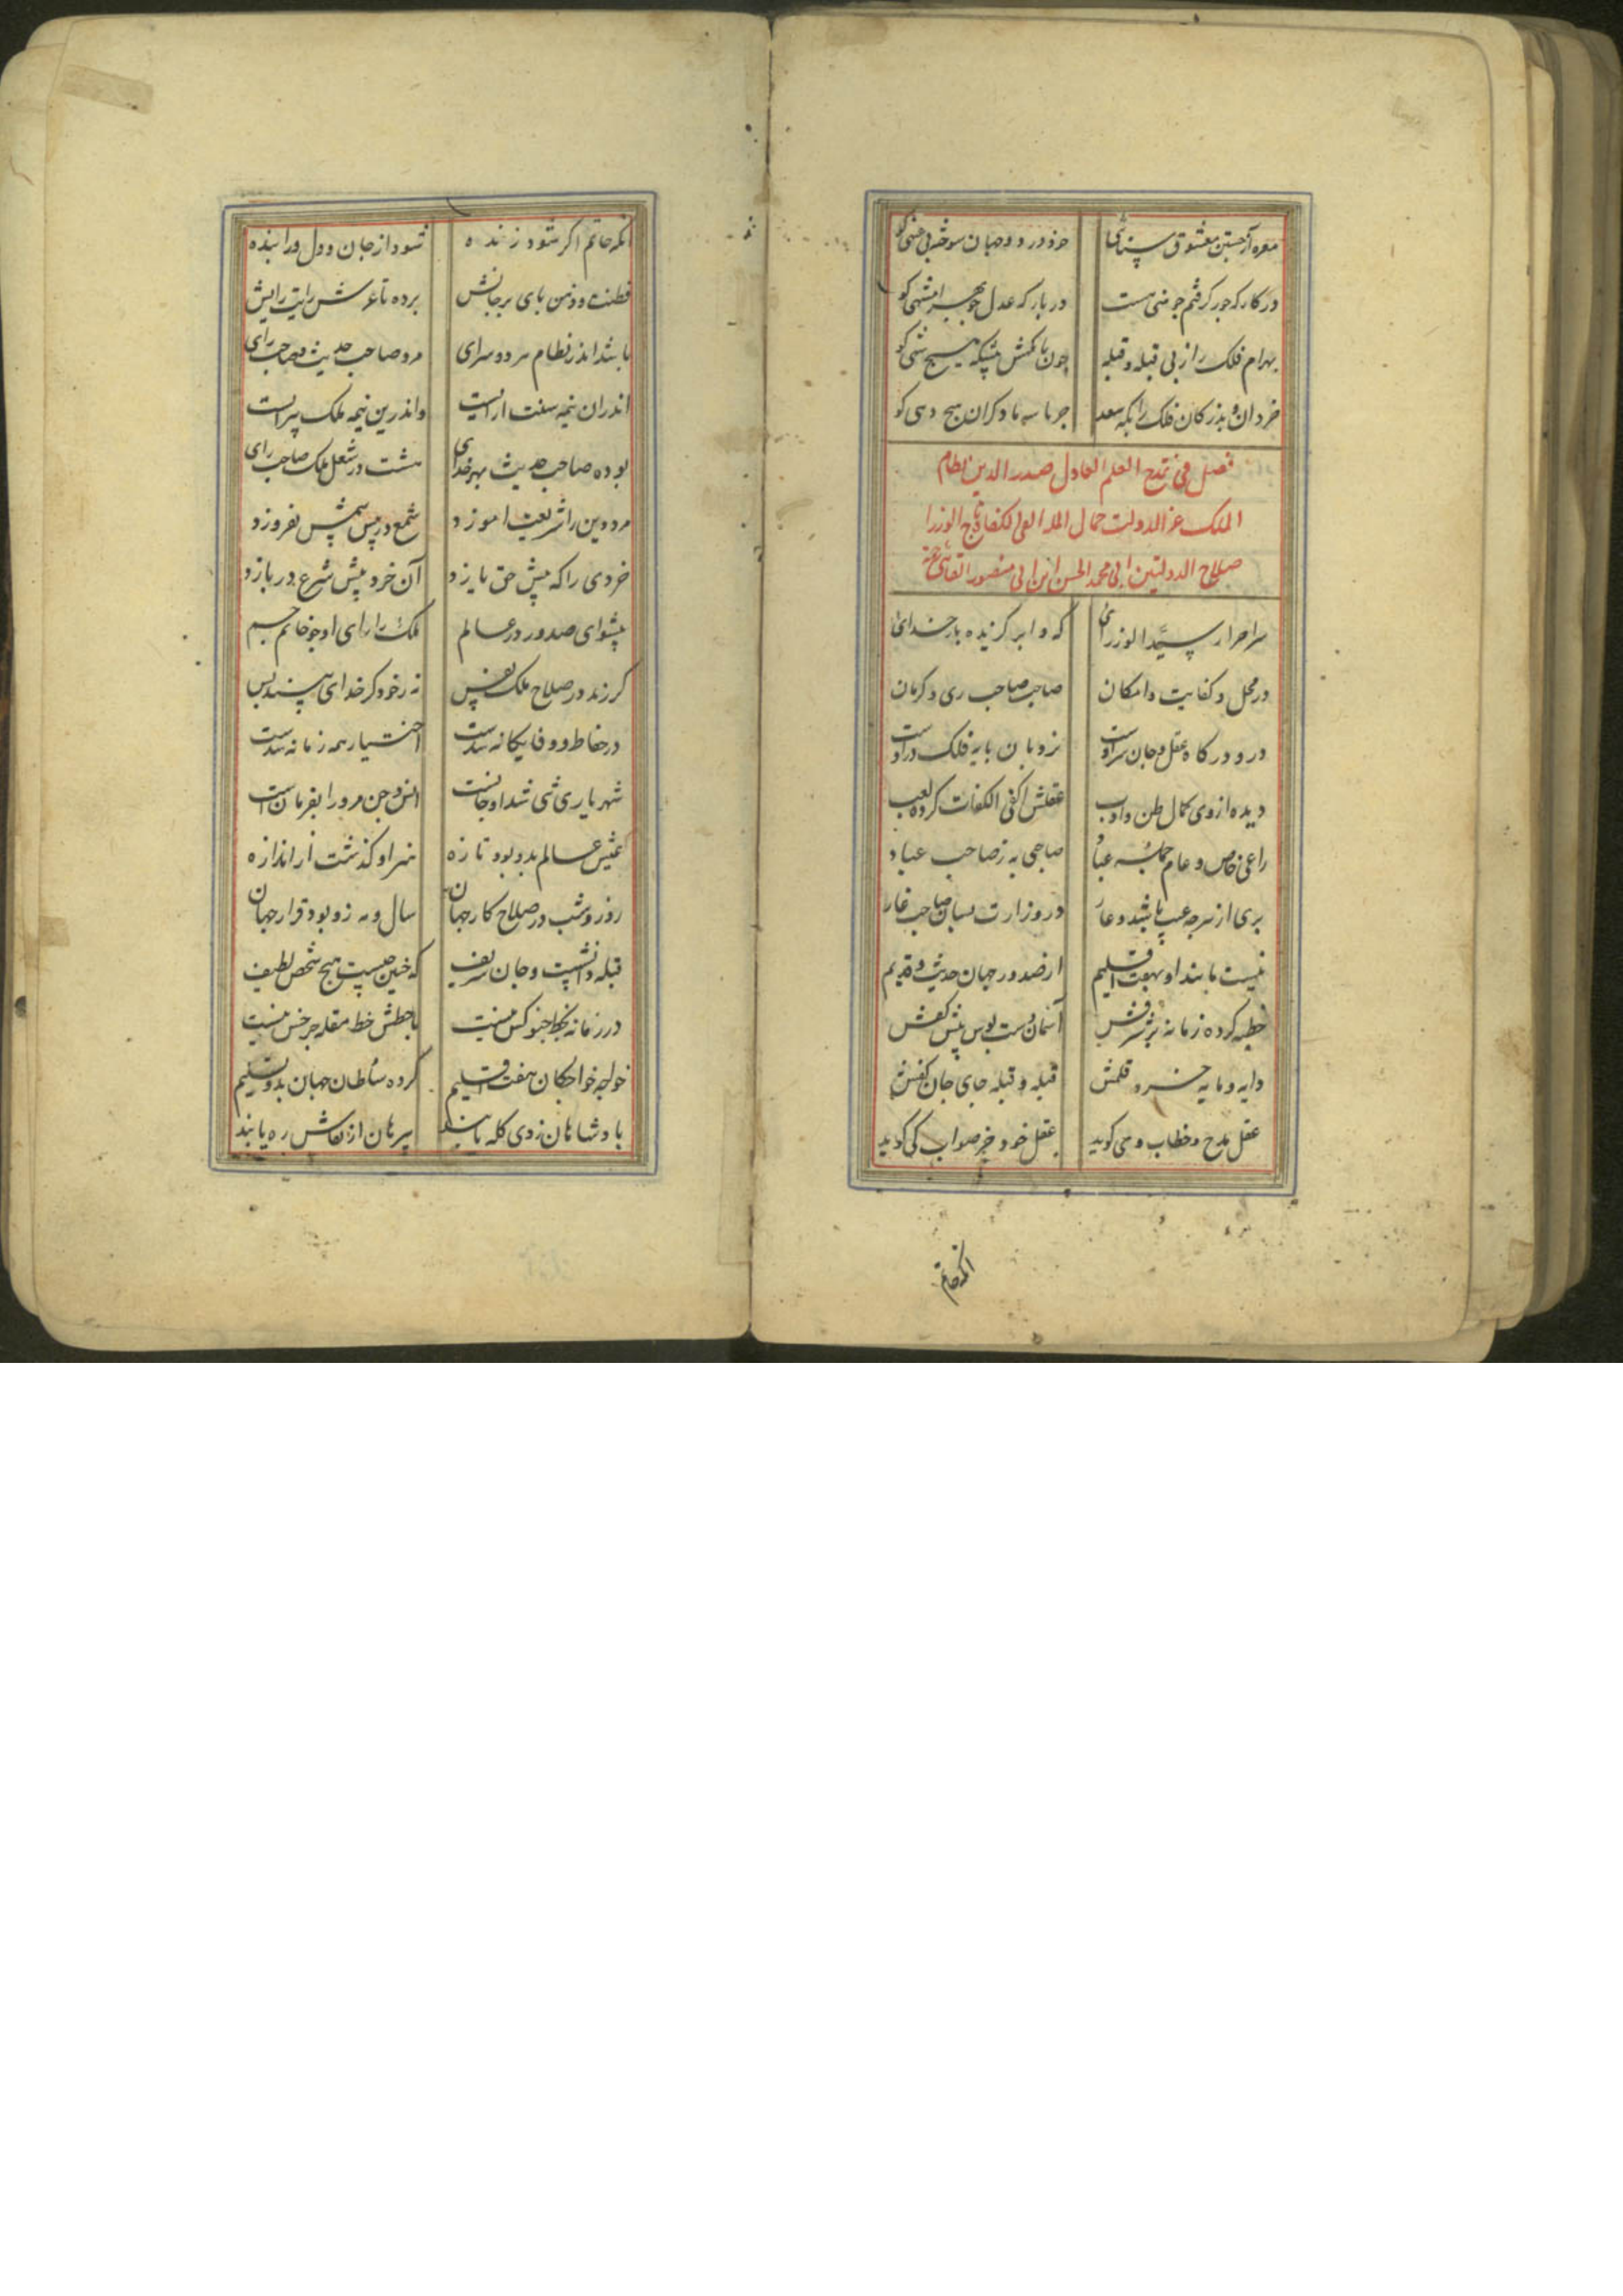 معشوق سنائی خود در دو جهان سوخته بی
در کارگه جور گرفتم چو منی هست در بارگه عدل چو بهرامشهی کو
بهرام فلک را ز پی قبله و قبله چون با کفش هیچ شهی کو
خردان و بذرکان فلک را بکه سعد جز ما سه با دکران هیچ دهی کو
فصل فی مدح العادل صدر الدین نظام
الملک عز الدولت جمال تاج الوزرا
صلاح الدولتین ابی محمد الحسن ابن ابی منصور
سید الوزرای که ورا بر کزیده بار خدای
در محل و کفایت و امکان صاحب صاحب ری و کرمان
در و درکاه عقل و جان سر اوست نردبان پایه فلک در اوست
دیده از وی کمال ظن و ادب عقلش اکفی الکفات کرده لقب
راعی خاص و عام جمله عباد صاحبی به ز صاحب عباد
بری از هرچه عیب باشد و عار در وزارت بسان صاحب غار
نیست مانند او بهفت اقلیم از صدور جهان حدیث و قدیم
خطبه کرده زمانه بر شرفش آسمان دست بوس پیش کفش
دایه و مایه خرد قلمش قبله و قبله جای جان
عقل مدح و خطاب وی کوید عقل خود جز صواب کی کوید
آنکه حاتم
آنکه حاتم اکر شود زنده شود از جان و دل ورا بنده
فطنت و ذهن پای برجایش برده تا عرش رایت رایش
باشد اندر نظام هر دو سرای مرد صاحب حدیث و صاحب رای
اندران نیمه سنت آرایست واندرین نیمه ملک پیرایست
بوده صاحب حدیث بهر خدای هست در شغل ملک صاحب رای
مرد دین را شریعت آموزد شمع در پیش شمس نفروزد
خردی را که پیش حق یازد آن خرد پیش شرع دربازد
پیشوای صدور در عالم ملک را رای او چو خاتم جم
کر زند در صلاح ملک نفس نه ز خود کز خدای بیند بس
در حفاظ و وفا یکانه شدست اختیار همه زمانه شدست
شهریاری تنی شد او جانست انس و جن مرورا بفرمان است
عیش عالم بدو بود تازه هنر او کذشت از اندازه
روز و شب در صلاح کار جهان سال و مه زو بود قرار جهان
قبله دانشست و جان شریف که چنین نیست هیچ شخص لطیف
در زمانه بخط چنو کس نیست با خطش خط مقله جز خس نیست
خواجه خواجکان هفت اقلیم کرده سلطان جهان بدو تسلیم
بادشاهان زدی کله یابند پیر از کفاش ره یابند